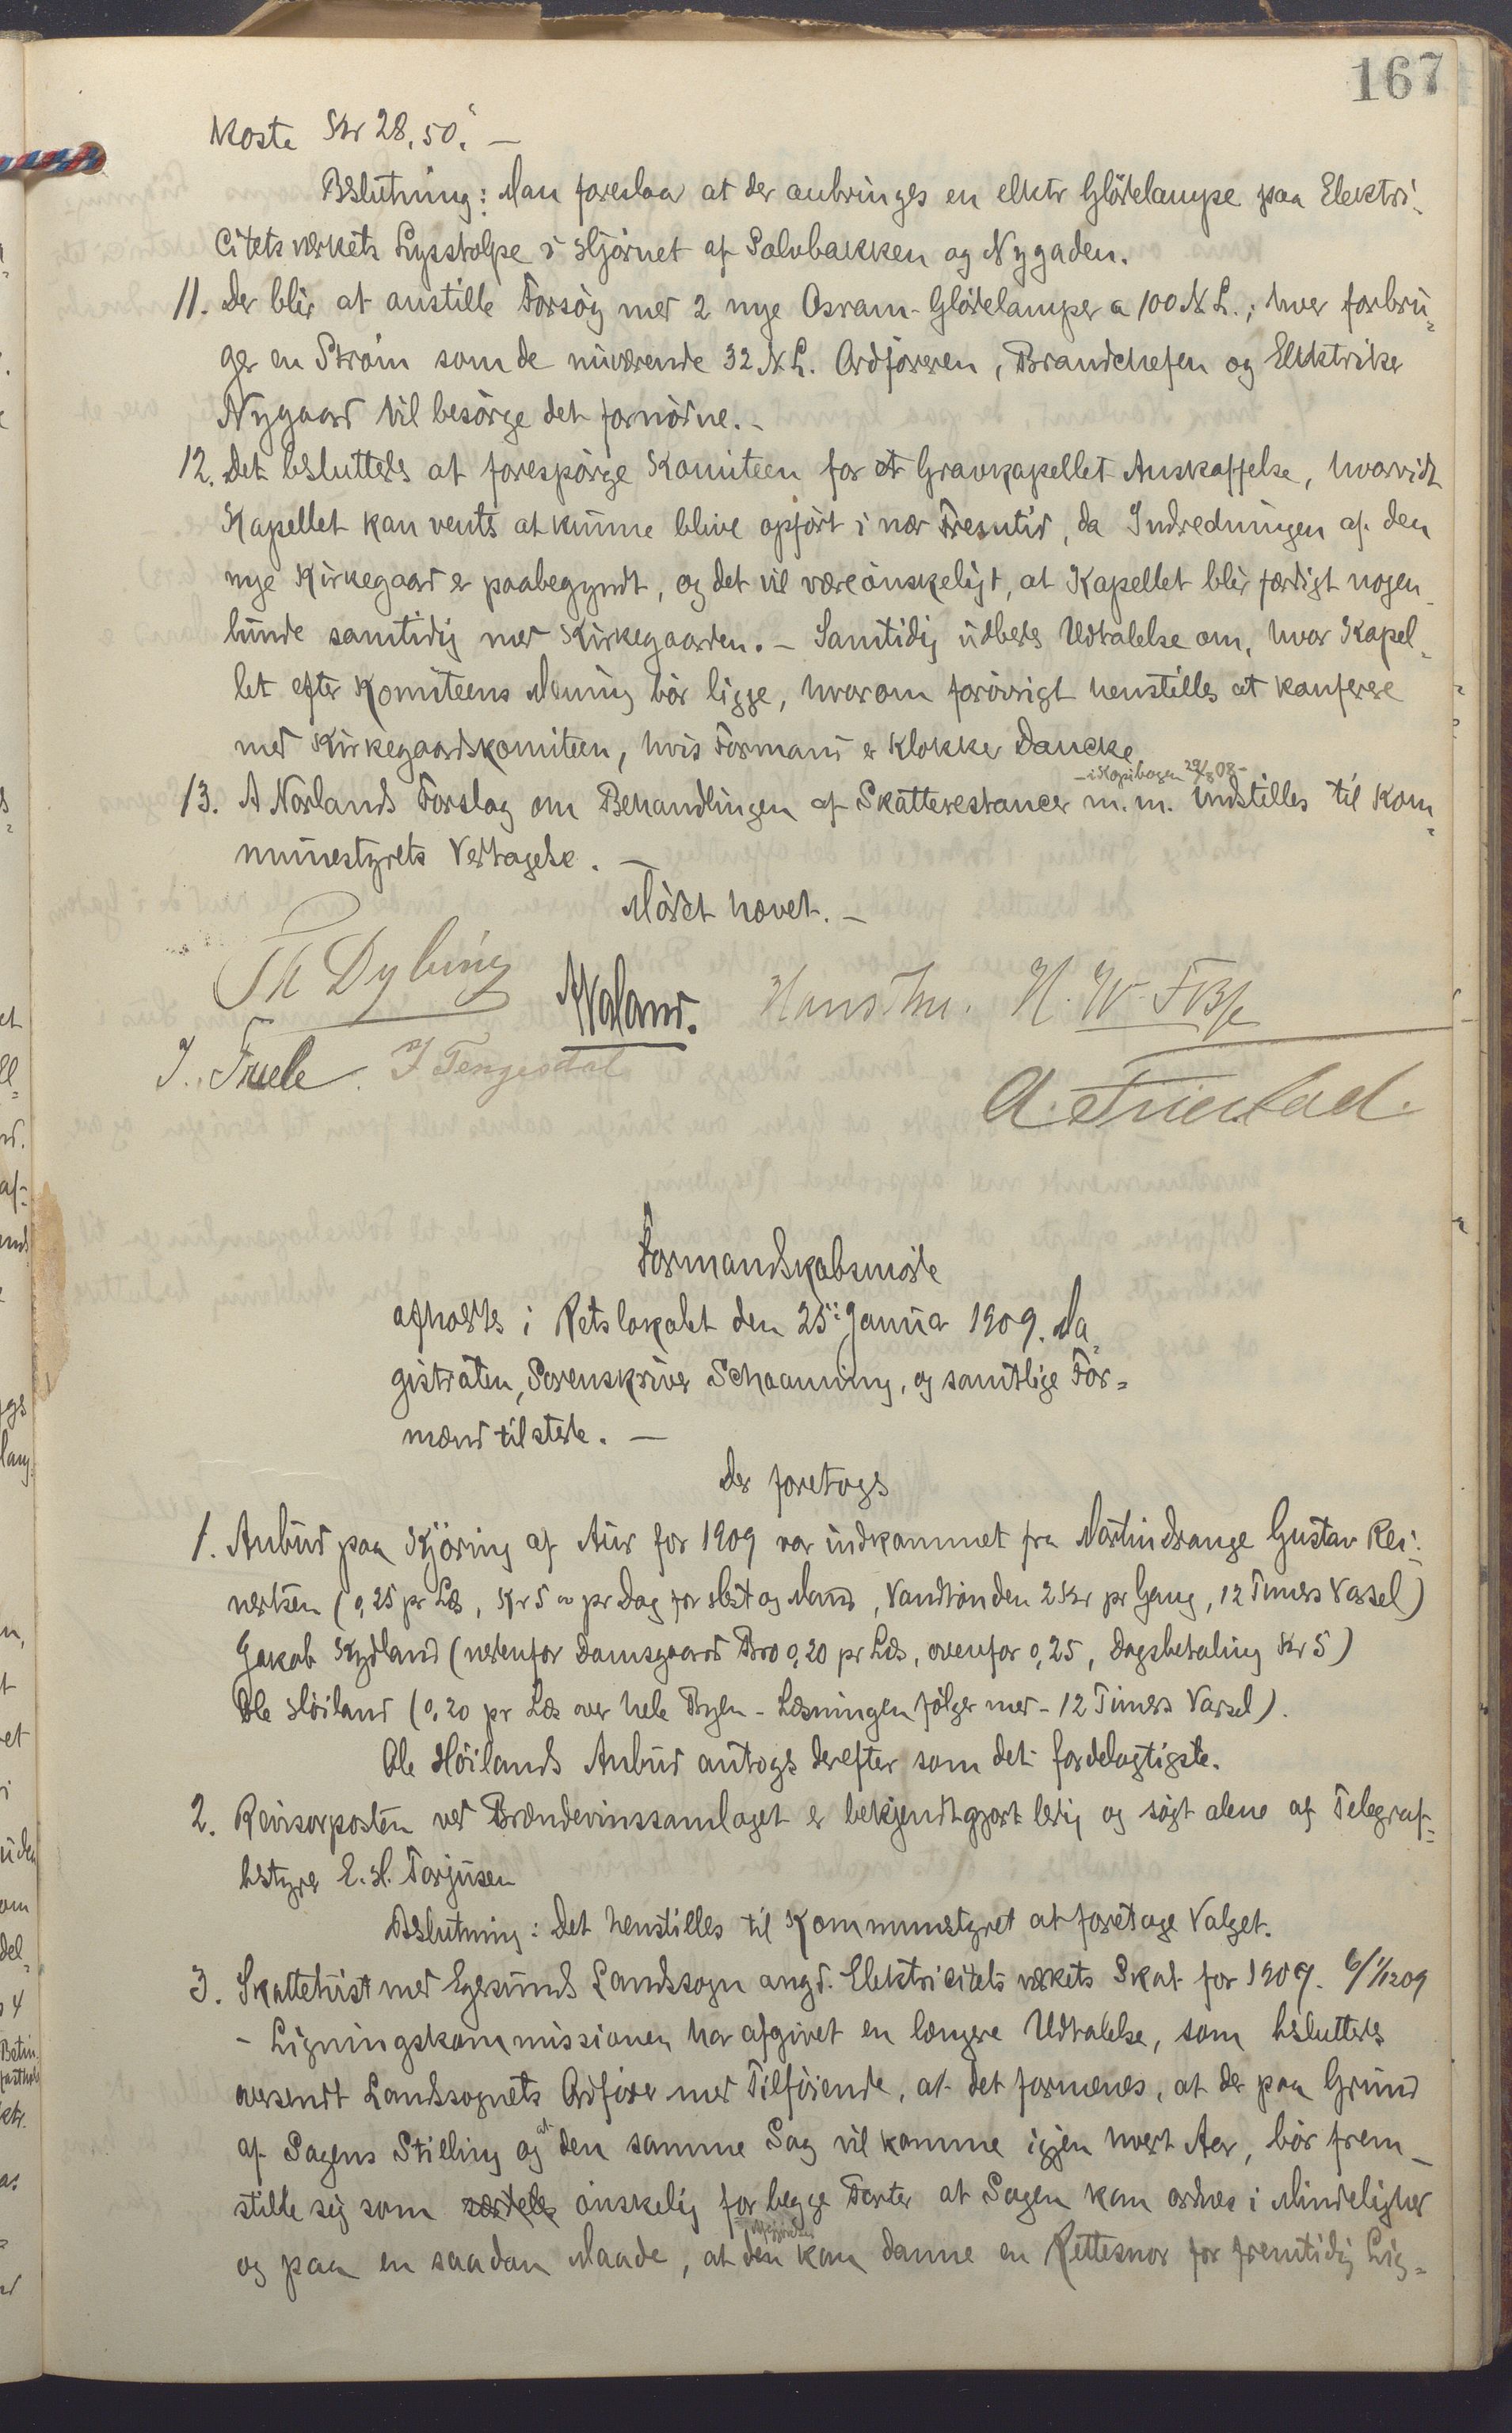 167
koste Kr 28,50. —
Beslutning: Man foreslaar at der anbringes en elektr Glödelampe paa Elektri-
citetsværkets Lysstolpe i Hjörnet af Salvbakken og Nygaden.
11. Der blir at anstille Forsög med 2 nye Osram-Glödelamper a 100 N.L.; hver forbru-
ger en Ström som de nuværende 32 N.L. Ordföreren, Brandchefen og Elektriker
Nygaard til besörge det fornödne. -
12. Det besluttedes at forespörge Komiteen for et Gravkapellet Anskaffelse, hvorvidt
Kapellet kan ventes at kunne blive opfört i nær Fremtid, da Indredningen af den
nye Kirkegaard er paabegyndt, og det vil være önskeligt, at Kapellet blir færdigt nogen-
lunde samtidig med Kirkegaarden. - Samtidig udbedes Udtalelse om, hvor Kapel-
let efter Komiteens Mening bör ligge, hvorom forövrigt henstilles at konferere
med Kirkegaardskomiteen, hvis Formand er Klokker Dancke
- i Kopibogen 29/8 08 -
13. A Norlands Forslag om Behandlingen af Skatterestancer m.m. indstilles til Kom-
munestyrets Vedtagelse. —
Mödet hævet. —
Th Dybing
J. Friele. J Tengesdal
A. Friestad.
Formandskabsmöde
afholdtes i Retslokalet den 25: Januar 1909. Ma-
gistraten, Sorenskriver Schaanning, og samtlige For-
mænd tilstede. —
Der foretoges
1. Anbud paa Kjöring af Aur for 1909 var indkommet fra Martin drange Gustav Rei-
nertsen (0,25 pr Læs, Kr 5 00 pr Dag for Hest og Mand, Vandtönden 2 Kr pr Gang, 12 Timers Varsel)
Jakob Kydland (nedenfor Damsgaards Bro 0,20 pr Læs, ovenfor 0,25, Dagsbetaling Kr 5)
Ole Höiland (0,20 pr Læs over hele Byen - Læsningen fölger med - 12 Timers Varsel).
Ole Höilands Anbud antoges derefter som det fordelagtigste.
2. Revisorposten ved Brændevinssamlaget er bekjendtgjort ledig og sögt alene af Telegraf-
bestyrer E. H. Torjusen
Beslutning: Det henstilles til Kommunestyret at foretage Valget.
3. Skattetvist med Egersunds Landssogn angd. Elektricitetsværkets Skat for 1909.
- Ligningskommissionen har afgivet en længere Udtalelse, som besluttedes
oversendt Landsognets Ordförer med Tilföiende, at det formenes, at der paa Grund
af Sagens Stilling og at den samme Sag vil komme igjen hvert Aar, bör frem-
stille sig som særdeles önskelig for begge Parter at Sagen kan ordnes i Mindelighed
og paa en saadan Maade, at den Afgjörelse kan danne en Rettesnor for fremtidig Lig-